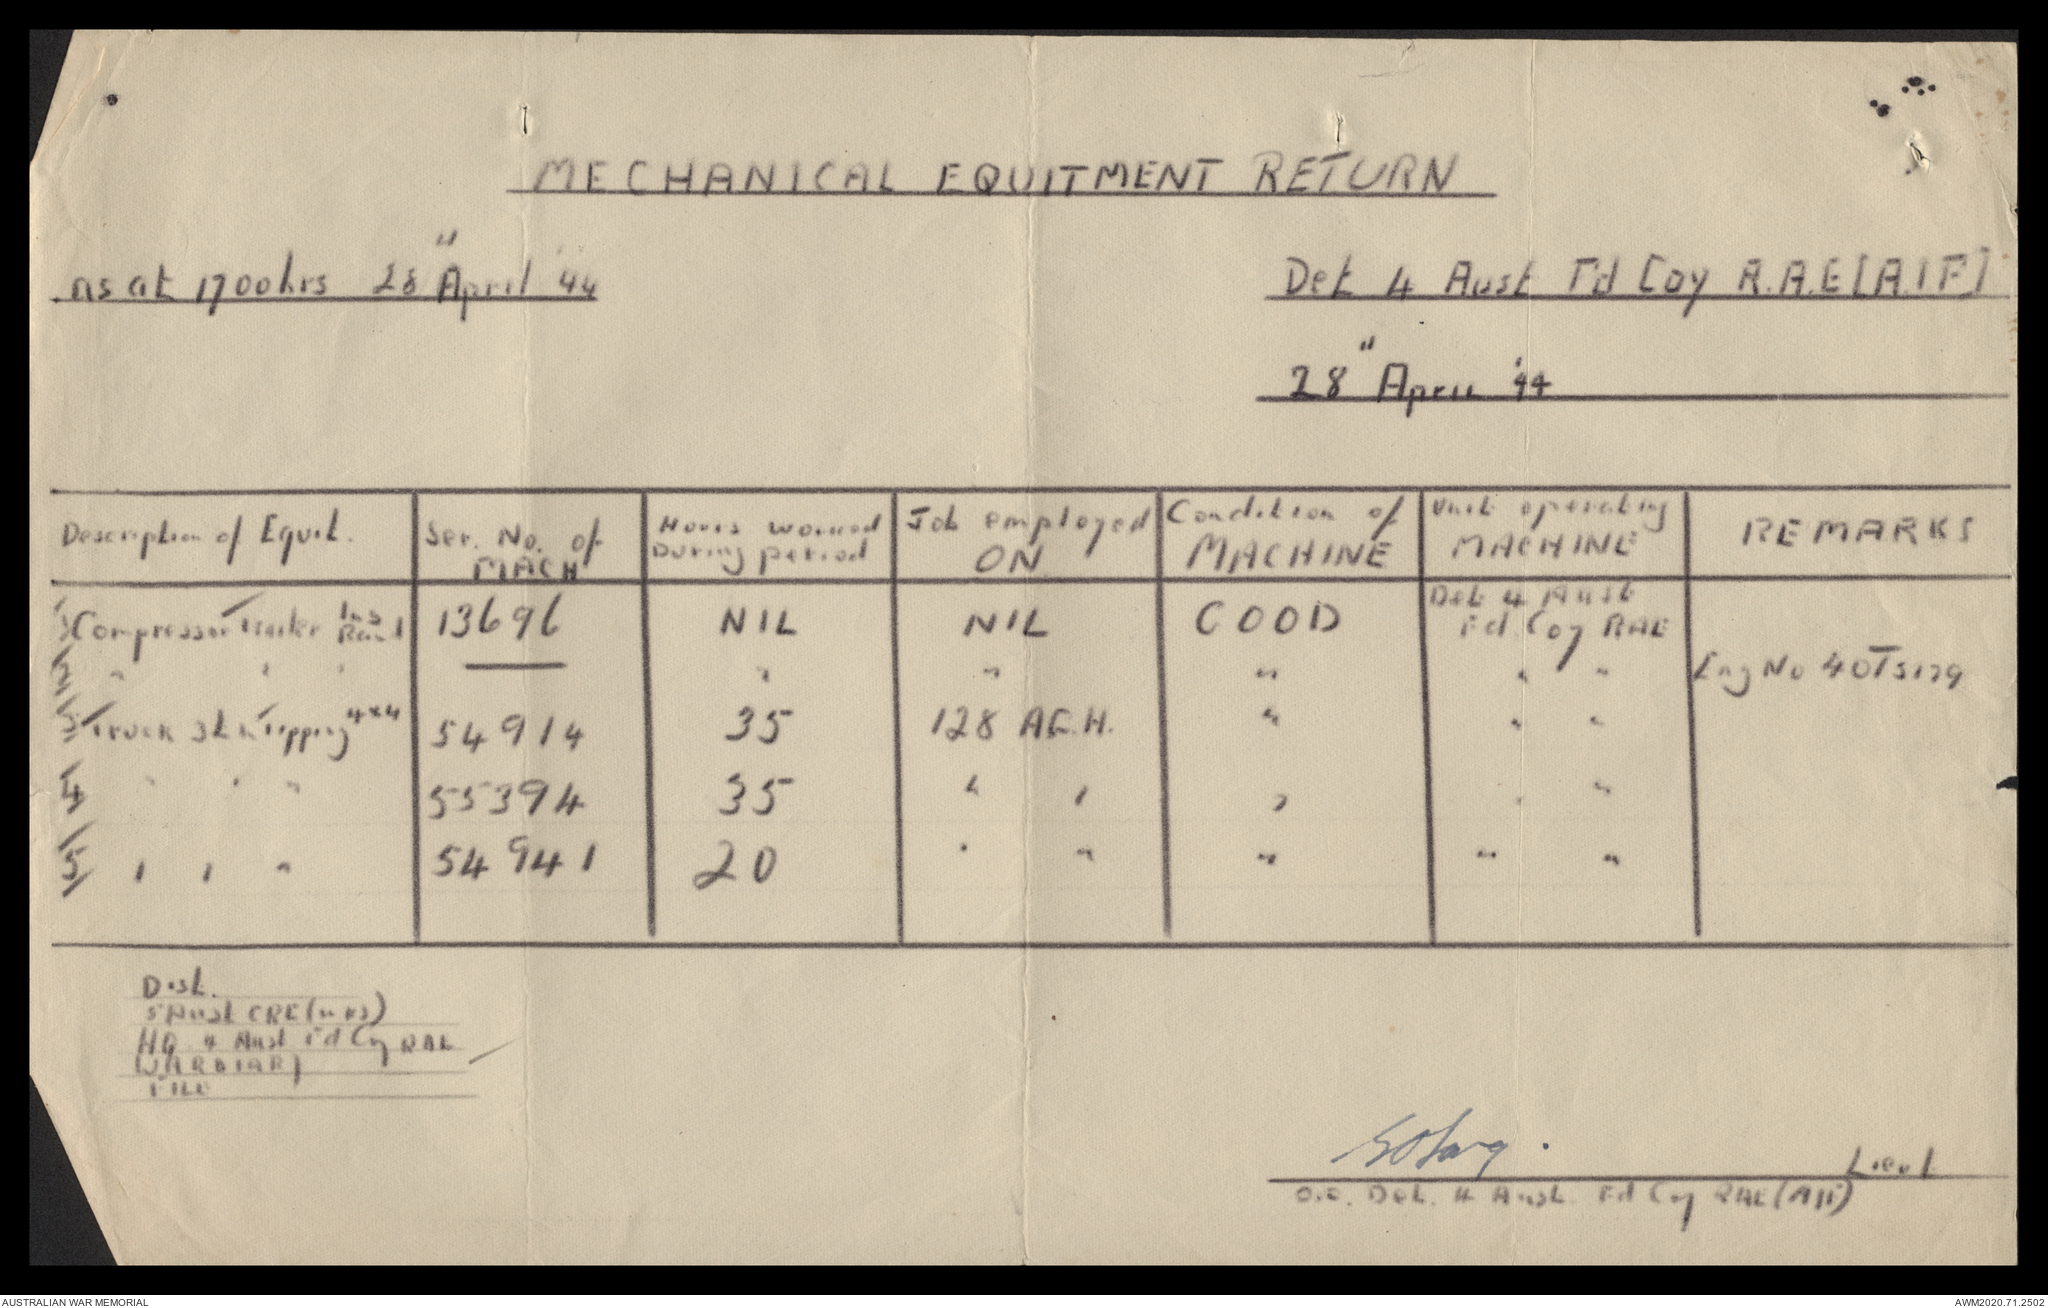 MECHANICAL EQUITMENT RETURN
as at 1700hrs 28" April '44
Det 4 Aust Fd Coy R.A.E [A.I.F]
28" April '44
Description of Equit. Ser. No. of MACH Hours worked During period Job employed ON Condition of MACHINE Unit operating MACHINE REMARKS
1 Compressor Trailer Ing Rand 13696 NIL NIL GOOD Det 4 Aust Fd. Coy RAE
2 " " " — " " " " " Eng No 40T5179
3 Truck Tipping 4x4 54914 35 128 A.G.H. " " "
4 " " " 55394 35 " " " " "
5 " " " 54941 20 " " " " "
Dist.
5 Aust CRE (wks)
HQ 4 Aust Fd Coy RAE
WARDIARY
FILE
Lieut
O.C. Det. 4 Aust. Fd Coy RAE (AIF)
AUSTRALIAN WAR MEMORIAL
AWM2020.71.2502